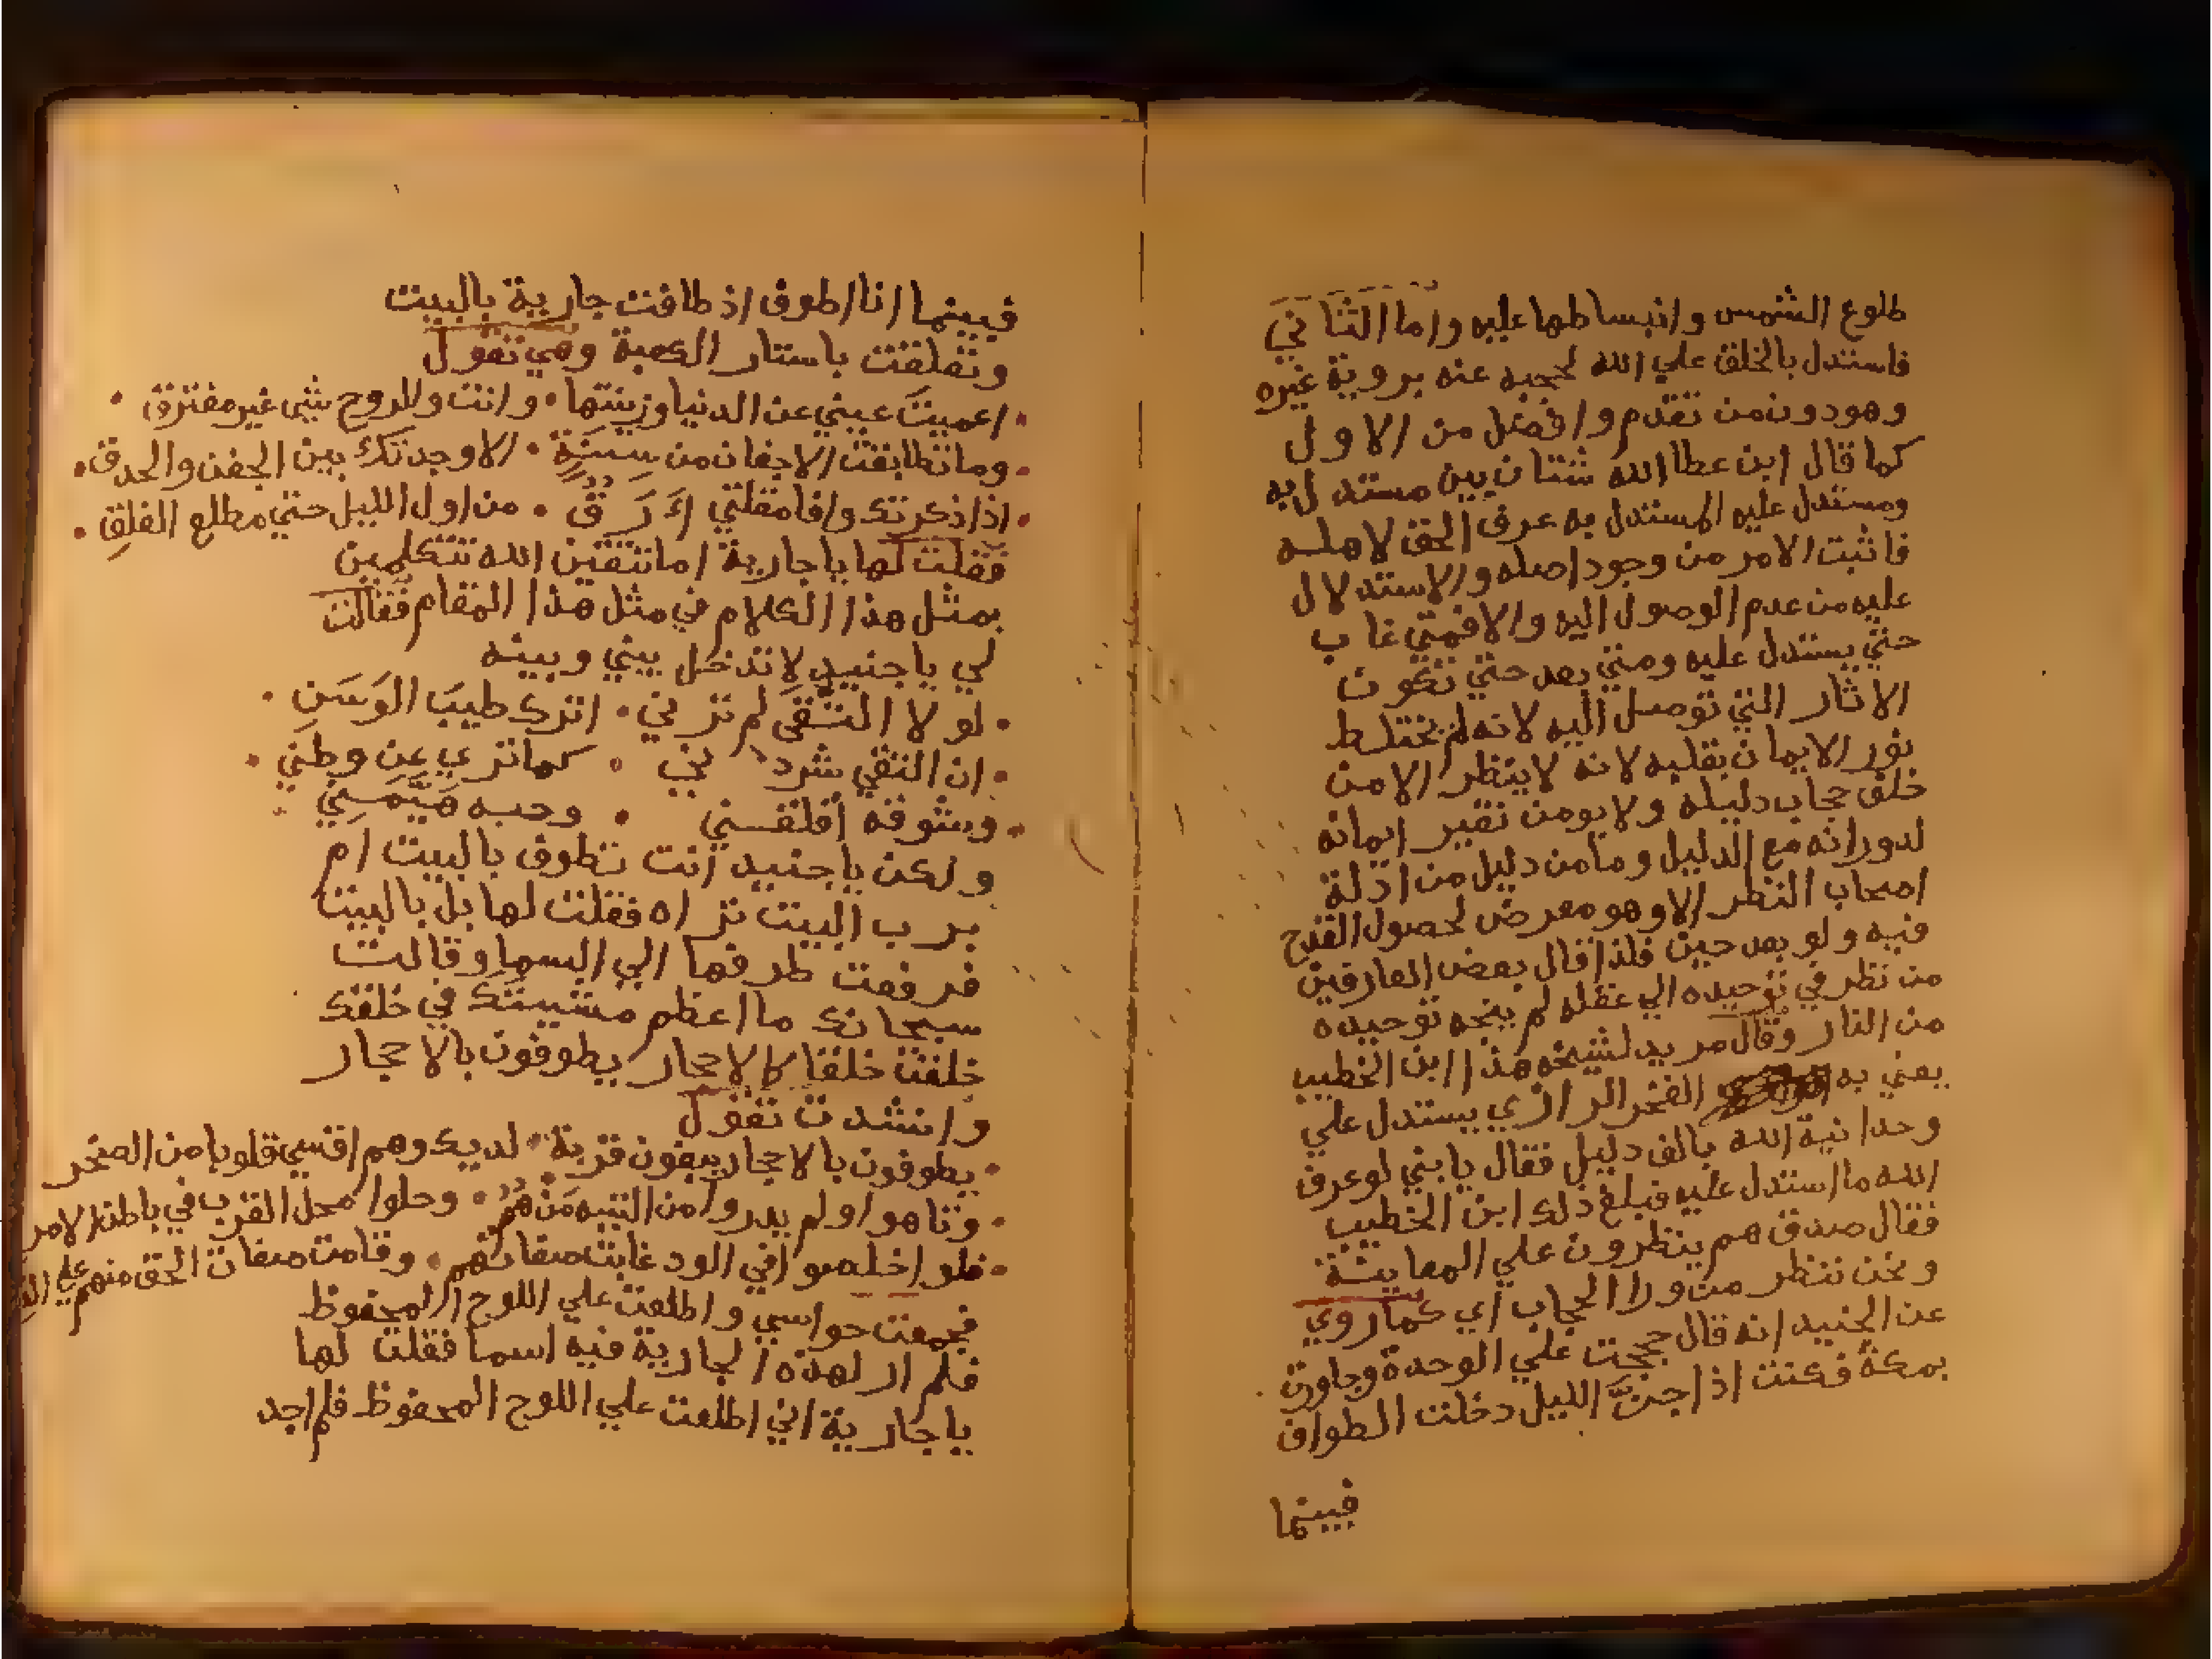 طلوع الشمس وانبساطها عليه واما الثاني
فاستدل بالخلق علي الله لحجبه عنه بروية غيره
وهو دون من تقدم وافضل من الاول
كما قال ابن عطا الله شتان بين مستدل به
ومستدل عليه المستدل به عرف الحق لاهله
فاثبت الامر من وجود اصله والاستدلال
عليه من عدم الوصول اليه والا فمتي غاب
حتي يستدل عليه ومتي بعد حتي تكون
الاثار التي توصل اليه لانه لم يختلط
نور الايمان بقلبه لانه لا ينظر الا من
خلف حجاب دليله ولا يومن تغير ايمانه
لدورانه مع الدليل وما من دليل من ادلة
اصحاب النظر الا وهو معرض لحصول القدح
فيه ولو بعد حين فلذا قال بعض العارفين
من نظر في توحيده الي عقله لم ينجه توحيده
من النار وقال مريد لشيخه هذا ابن الخطيب
يعني به الفخر الرازي يستدل علي
وحدانية الله بالف دليل فقال يا بني لو عرف
الله ما استدل عليه فبلغ ذلك ابن الخطيب
فقال صدق هم ينظرون علي المعاينة
ونحن ننظر من ورا الحجاب اي كما روي
عن الجنيد انه قال حججت علي الوحدة وجاورت
بمكة فكنت اذا جنَّ الليل دخلت الطواف
فبينما
فبينما انا اطوف اذ طافت جارية بالبيت
وتعلقت باستار الكعبة وهي تقول
اعميتَ عيني عن الدنيا وزينتها • وانت والروح شيى غير مفترق •
• وما تطابقت الاجفان من سِنَةٍ • الا وجدتك بين الجفن والحدق •
• اذا ذكرتك وافا مقلتي اَرَقٌ • من اول الليل حتي مطلع الفلقِ •
فقلت لها يا جارية اما تتقين الله تتكلمين
بمثل هذا الكلام في مثل هذا المقام فقالت
لي يا جنيد لا تدخل بيني وبينه
• لولا التقي لم ترني • اترك طيبَ الوَسَنِ •
• ان التقي شرد ني • كما تري عن وطني •
• وشوقه أقلقني • وحبه هَيَّمَنِي
ولكن يا جنيد انت تطوف بالبيت ام
برب البيت تراه فقلت لها بل بالبيت
فرفعت طرفها الي السما وقالت
سبحانك ما اعظم مشيتك في خلقك
خلقت خلقا كالاحجار يطوفون بالاحجار
وانشدت تقول
• يطوفون بالاحجار يبغون قربة • لديك وهم اقسي قلوبا من الصخر
• وتاهوا ولم يدروا من التيه مَنْ هُمُ • وحلوا محل القرب في باطن الامر
• فلو اخلصوا في الود غابت صفاتهم • وقامت صفات الحق منهم علي
فجمعت حواسي واطلعت علي اللوح المحفوظ
فلم ار لهذه الجارية فيه اسما فقلت لها
يا جارية اني اطلعت علي اللوح المحفوظ فلم اجد